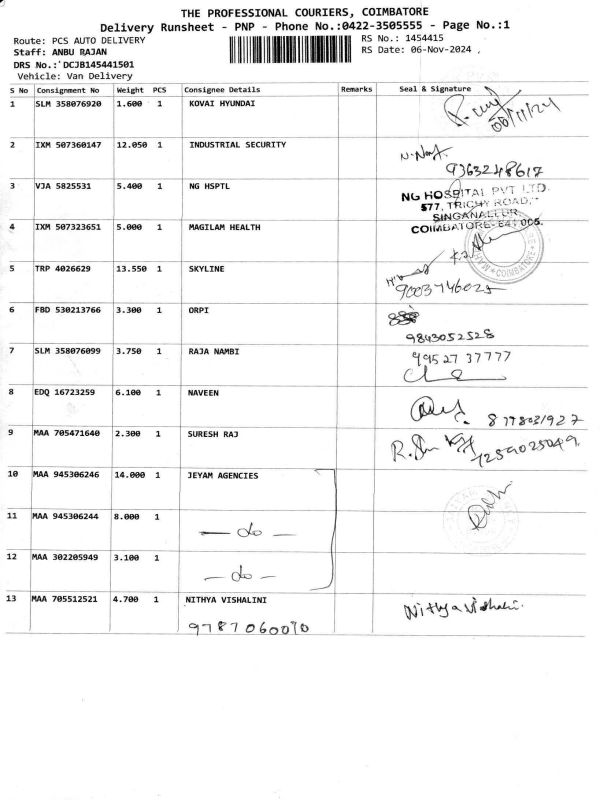 THE PROFESSIONAL COURIERS, COIMBATORE
Delivery Runsheet - PNP - Phone No.:0422-3505555 - Page No.:1
Route: PCS AUTO DELIVERY
RS No.: 1454415
Staff: ANBU RAJAN
RS Date: 06-Nov-2024
DRS No.: DCJB145441501
Vehicle: Van Delivery
S No Consignment No Weight PCS Consignee Details Remarks Seal & Signature
1 SLM 358076920 1.600 1 KOVAI HYUNDAI
06/11/24
2 IXM 507360147 12.050 1 INDUSTRIAL SECURITY
9363248617
3 VJA 5825531 5.400 1 NG HSPTL
NG HOSPITAL PVT LTD.
577, TRICHY ROAD,
SINGANALLUR,
COIMBATORE- 641 005.
4 IXM 507323651 5.000 1 MAGILAM HEALTH
COIMBATORE
5 TRP 4026629 13.550 1 SKYLINE
9003746025
6 FBD 530213766 3.300 1 ORPI
9843052528
7 SLM 358076099 3.750 1 RAJA NAMBI
99527 37777
8 EDQ 16723259 6.100 1 NAVEEN
9 MAA 705471640 2.300 1 SURESH RAJ
7259025049
10 MAA 945306246 14.000 1 JEYAM AGENCIES
11 MAA 945306244 8.000 1
— do —
12 MAA 302205949 3.100 1
— do —
13 MAA 705512521 4.700 1 NITHYA VISHALINI
Nithya Vishalini
9787060070